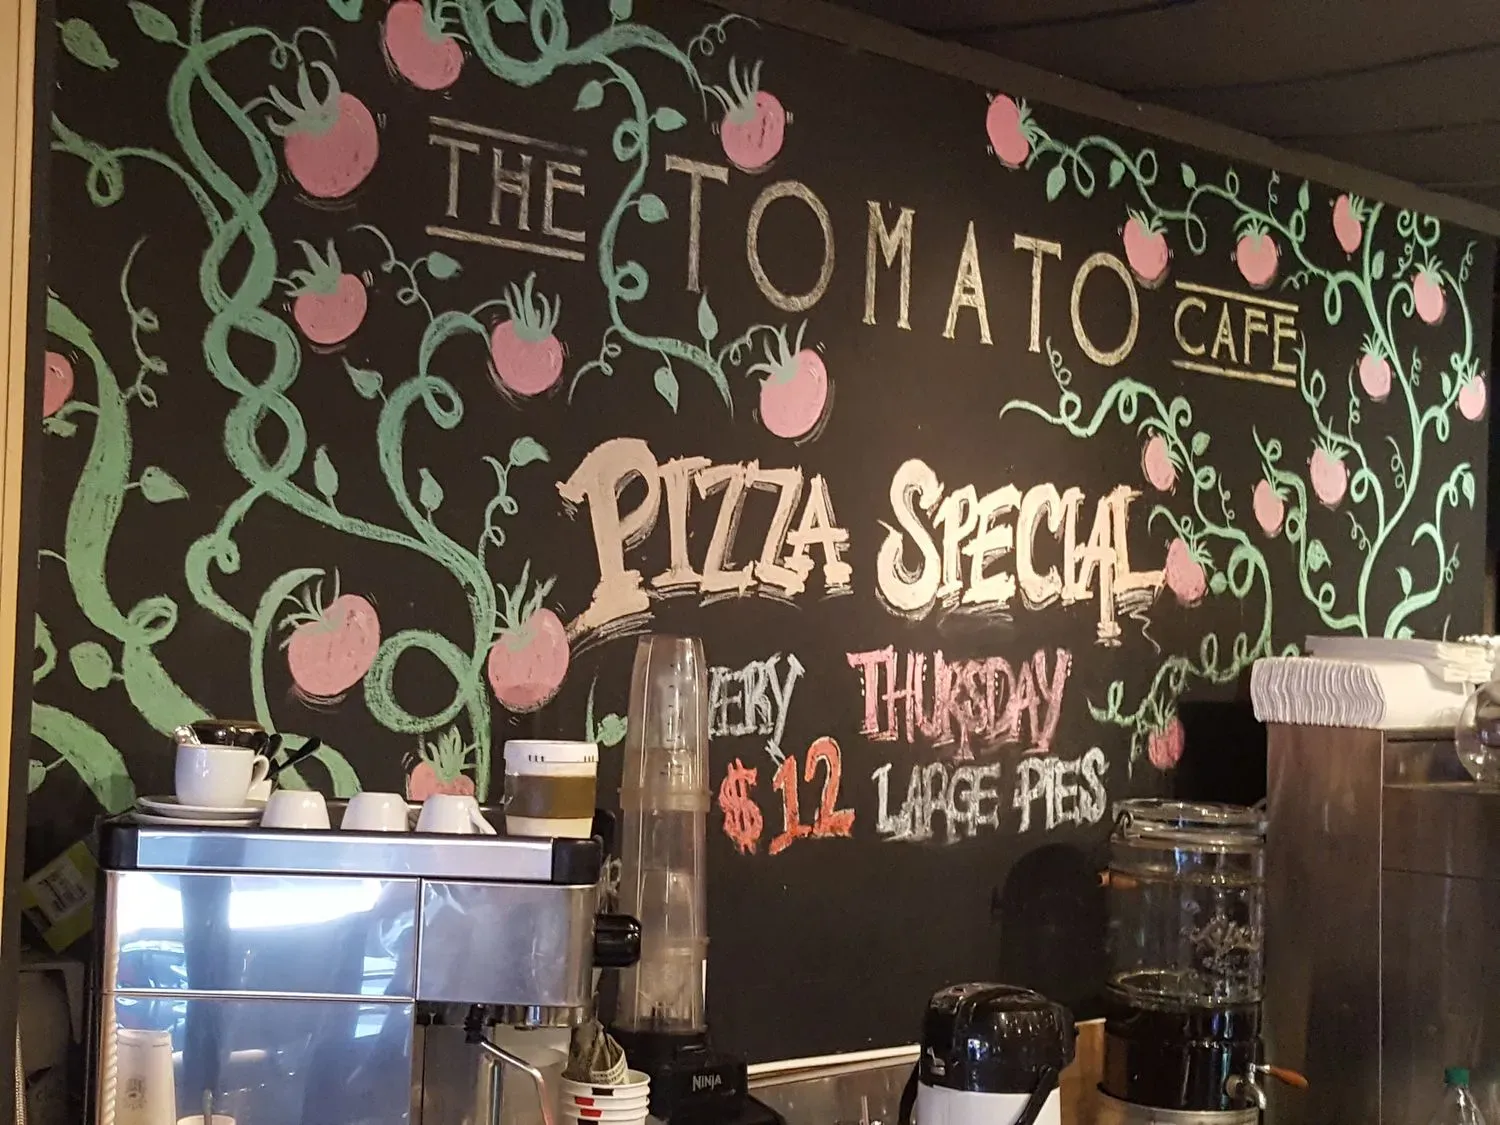 THE TOMATO CAFE
PIZZA SPECIAL
VERY THURSDAY
$12 LARGE PIES
NINJA